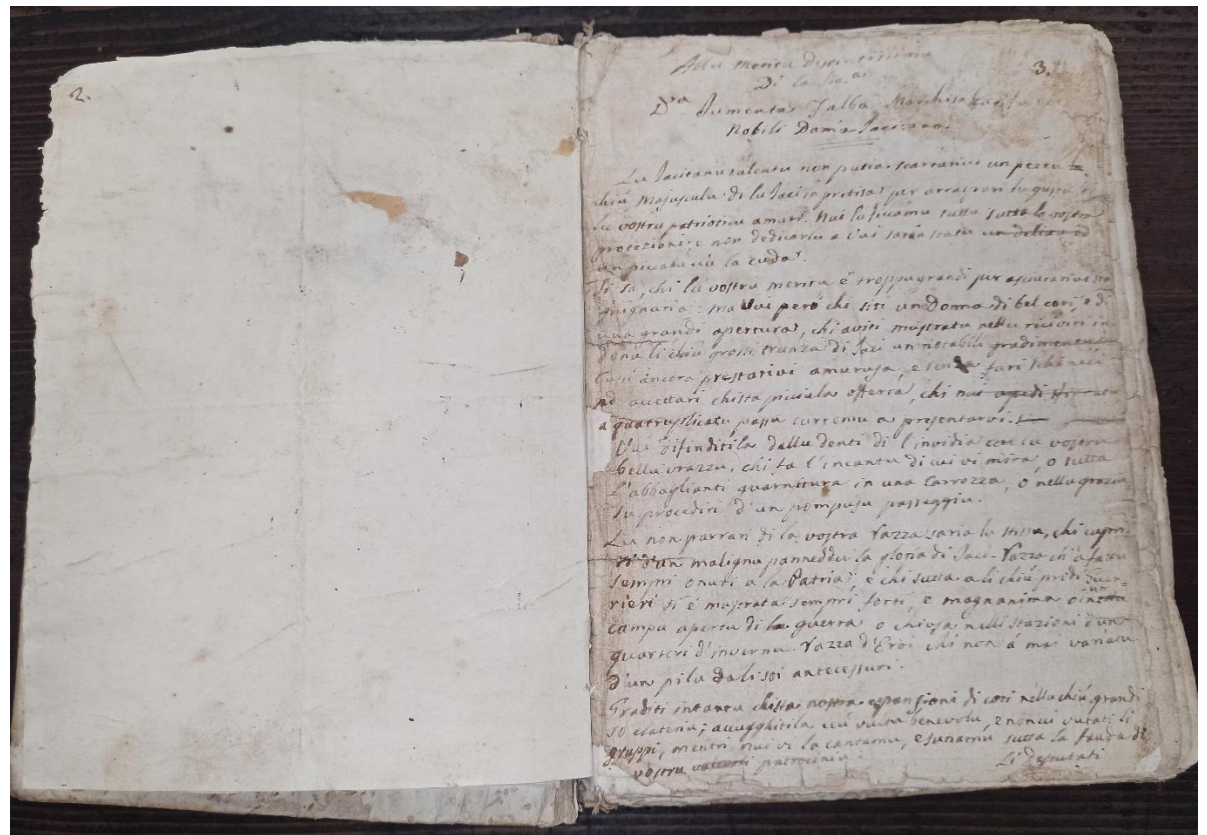 2.
3.
Alu meritu distintissimu
Di la
D.na Jumenta Jalba Marchisa
Nobili Dama Jacitana
Lu Jacitanu talentu non putia scartarivi un pezzu
chiú Majusculu di la Jaci in pretisa per arrasprari lu gustu
lu vostru patrioticu amuri. Nui lu ficimu sutta tutta la vostra
protezioni; e non dedicarlu a Vui saria statu un delittu ed
un piccatu cu la cuda.
Si sa, chi lu vostru meritu è troppu grandi per
: ma Vui però chi siti un Donna di bel cori, e di
una grandi apertura, chi aviti mustratu nellu riciviri in
dono li chiú grossi trunza di Jaci un notabili gradimentu
Cussì ancora prestativi amurusa, e senza fari
ad accettari chista piciula offerta, chi nui
a quatruplicatu passu curremu a presentarvi.
Vui difinditila dalli denti di l'invidia cu lu vostru
bellu vrazzu, chi fa l'incantu di cui vi mira, o sutta
l'abbaglianti guarnitura in una Carrozza, o nellu graziu
su procediri d'un pompusu passeggiu.
Lu non parrari di la vostra razza saria lu stissu, chi cupri
ri d'un malignu panneddu la gloria di Jaci. Razza ch'a fattu
sempri onuri a la Patria, e chi sutta a li chiú predi Guer-
rieri si è mustrata sempri forti, e magnanima o in
campu apertu di la guerra o chiusa nelli stazioni d'un
quarteri d'invernu. Razza d'Eroi chi non á mai variatu
d'un pilu dali soi antecessuri.
Graditi intantu chista nostra espansioni di cori nella chiú grandi
so ; accugghitila cu vultu benevolu, e non ci vutati li
gruppi, mentri nui vi la cantamu, e sunamu sutta la fauda di
vostru patrociniu.
Li Deputati